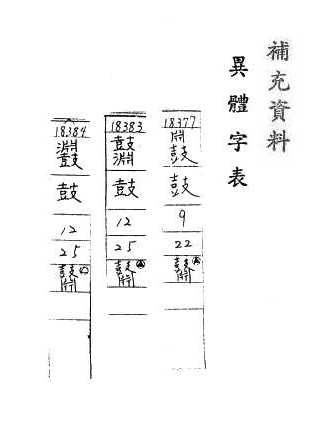 補充資料
異體字表
18377
鼓
9
22
鼘
18383
鼝
鼓
12
25
鼘
18384
鼓
12
25
鼘